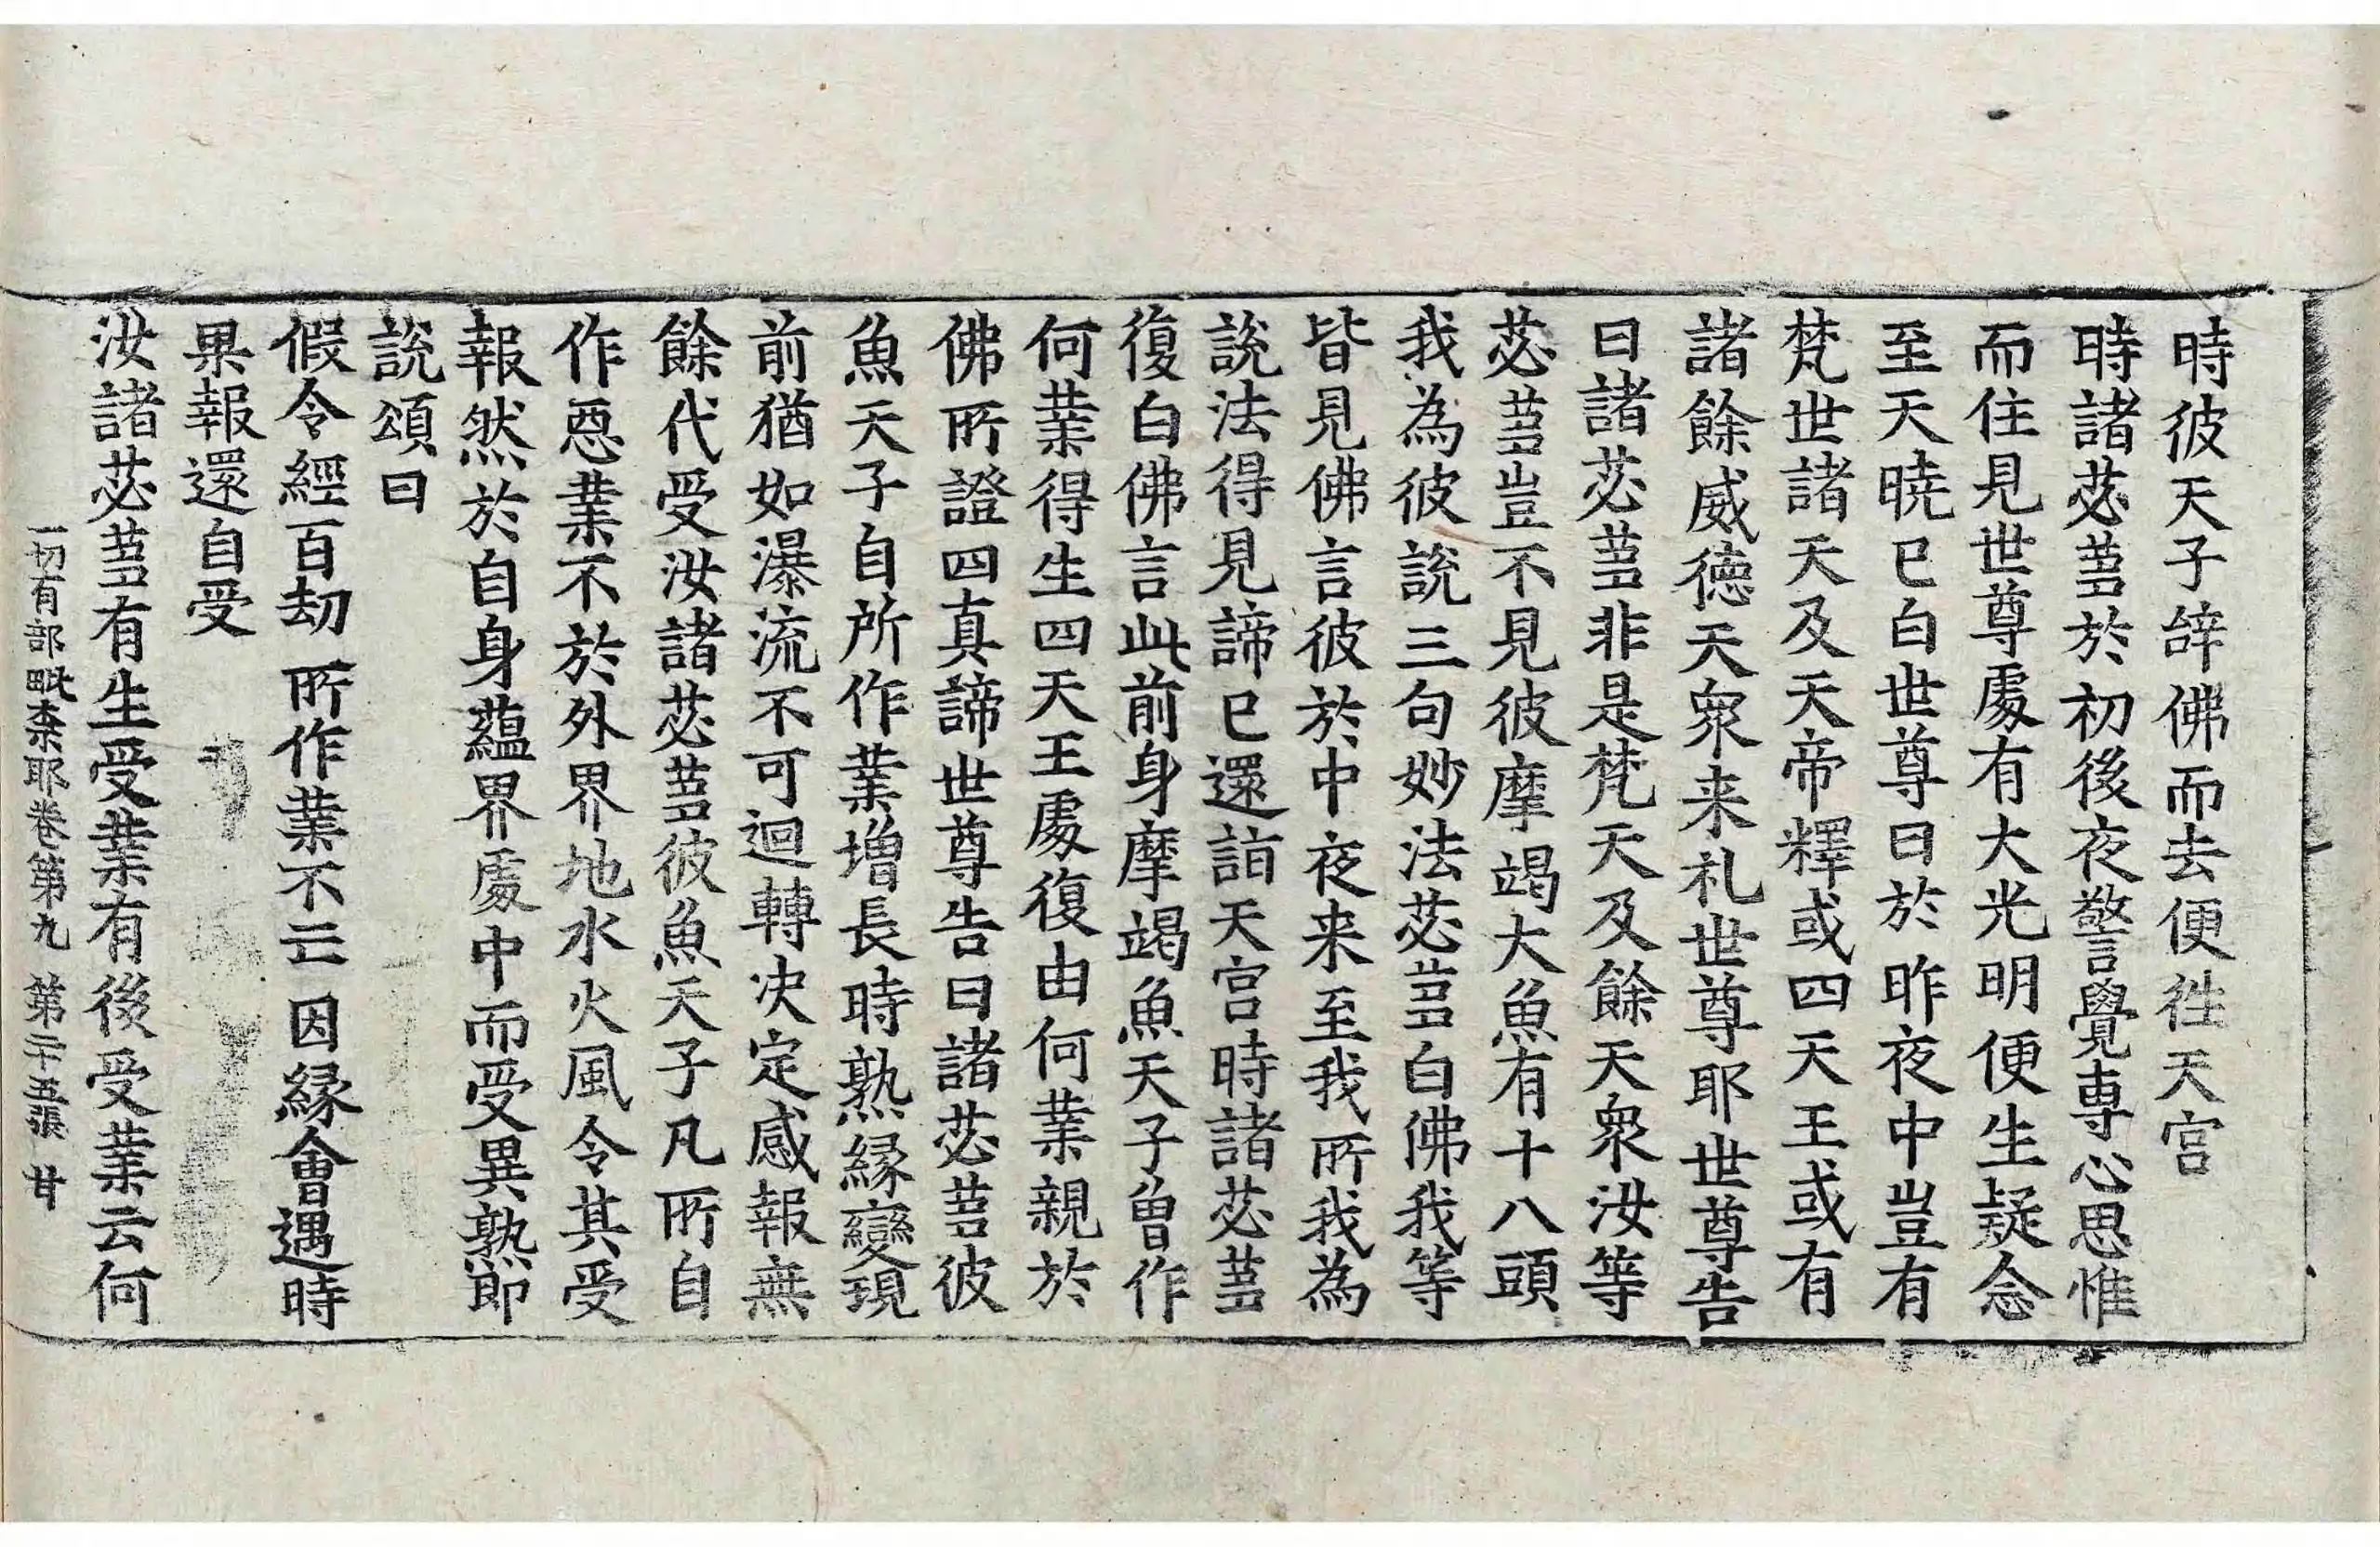 時彼天子辝佛而去便徃天宮
時諸苾蒭於初後夜警覺専心思惟
而住見世尊處有大光明便生疑念
至天曉已白世尊曰於昨夜中豈有
梵世諸天及天帝釋或四天王或有
諸餘威徳天衆来礼世尊耶世尊告
曰諸苾蒭非是梵天及餘天衆汝等
苾蒭豈不見彼摩竭大魚有十八頭
我為彼說三句妙法苾蒭白佛我等
皆見佛言彼於中夜来至我所我為
說法得見諦已還詣天宮時諸苾蒭
復白佛言此前身摩竭魚天子曾作
何業得生四天王處復由何業親於
佛所證四真諦世尊告曰諸苾蒭彼
魚天子自所作業増長時熟縁變現
前猶如瀑流不可迴轉决定感報無
餘代受汝諸苾蒭彼魚天子凡所自
作惡業不於外界地水火風令其受
報然於自身蘊界處中而受異熟即
說頌曰
假令經百劫　所作業不亡　因縁會遇時
果報還自受
汝諸苾蒭有生受業有後受業云何
一切有部毗柰耶卷第九　第二十五張　甘